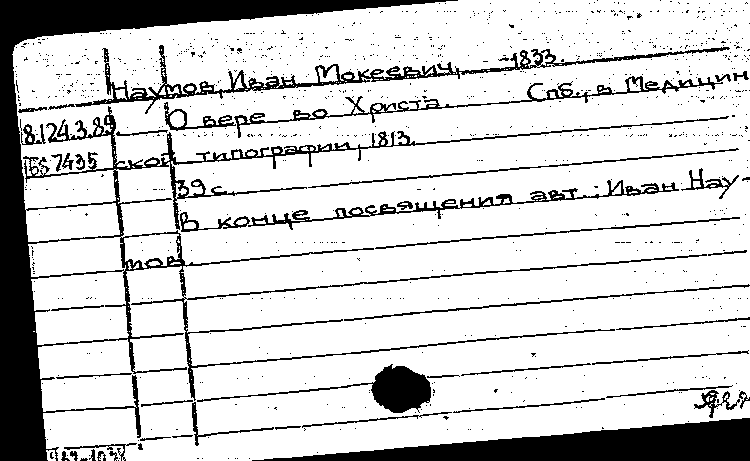 Наумов, Иван Мокеевич, -1833.
8.124.3.89 О вере во Христа. Спб., в Медицин
ской типографии, 1813.
39 с.
В конце посвящения авт.: Иван Нау-
мов.